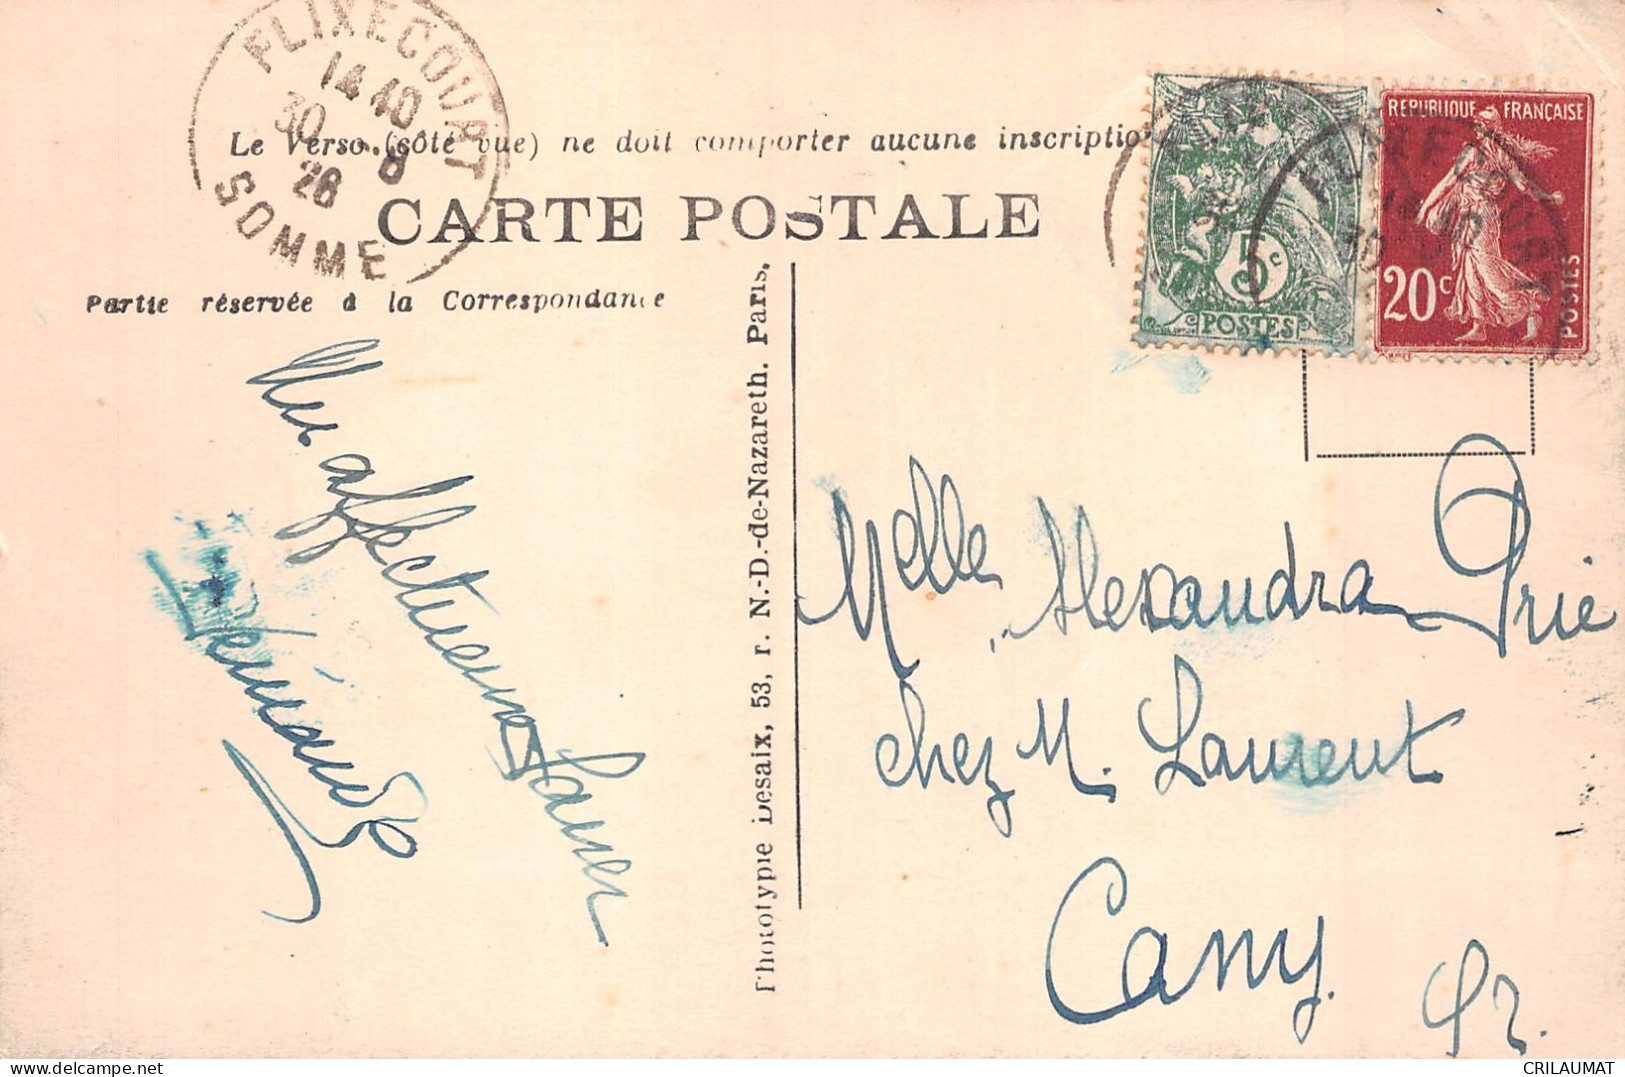 FLIXECOURT
14 40
30 8
26
SOMME
Le Verso (côté vue) ne doit comporter aucune inscription
CARTE POSTALE
Partie réservée à la Correspondance
REPUBLIQUE FRANÇAISE
20c
POSTES
5c
POSTES
FLIXECOURT
Phototypie Desaix, 53, r. N.-D.-de-Nazareth. Paris.
affectueux
Melle Alexandra Prie
chez M. Laurent
Cany
CRILAUMAT